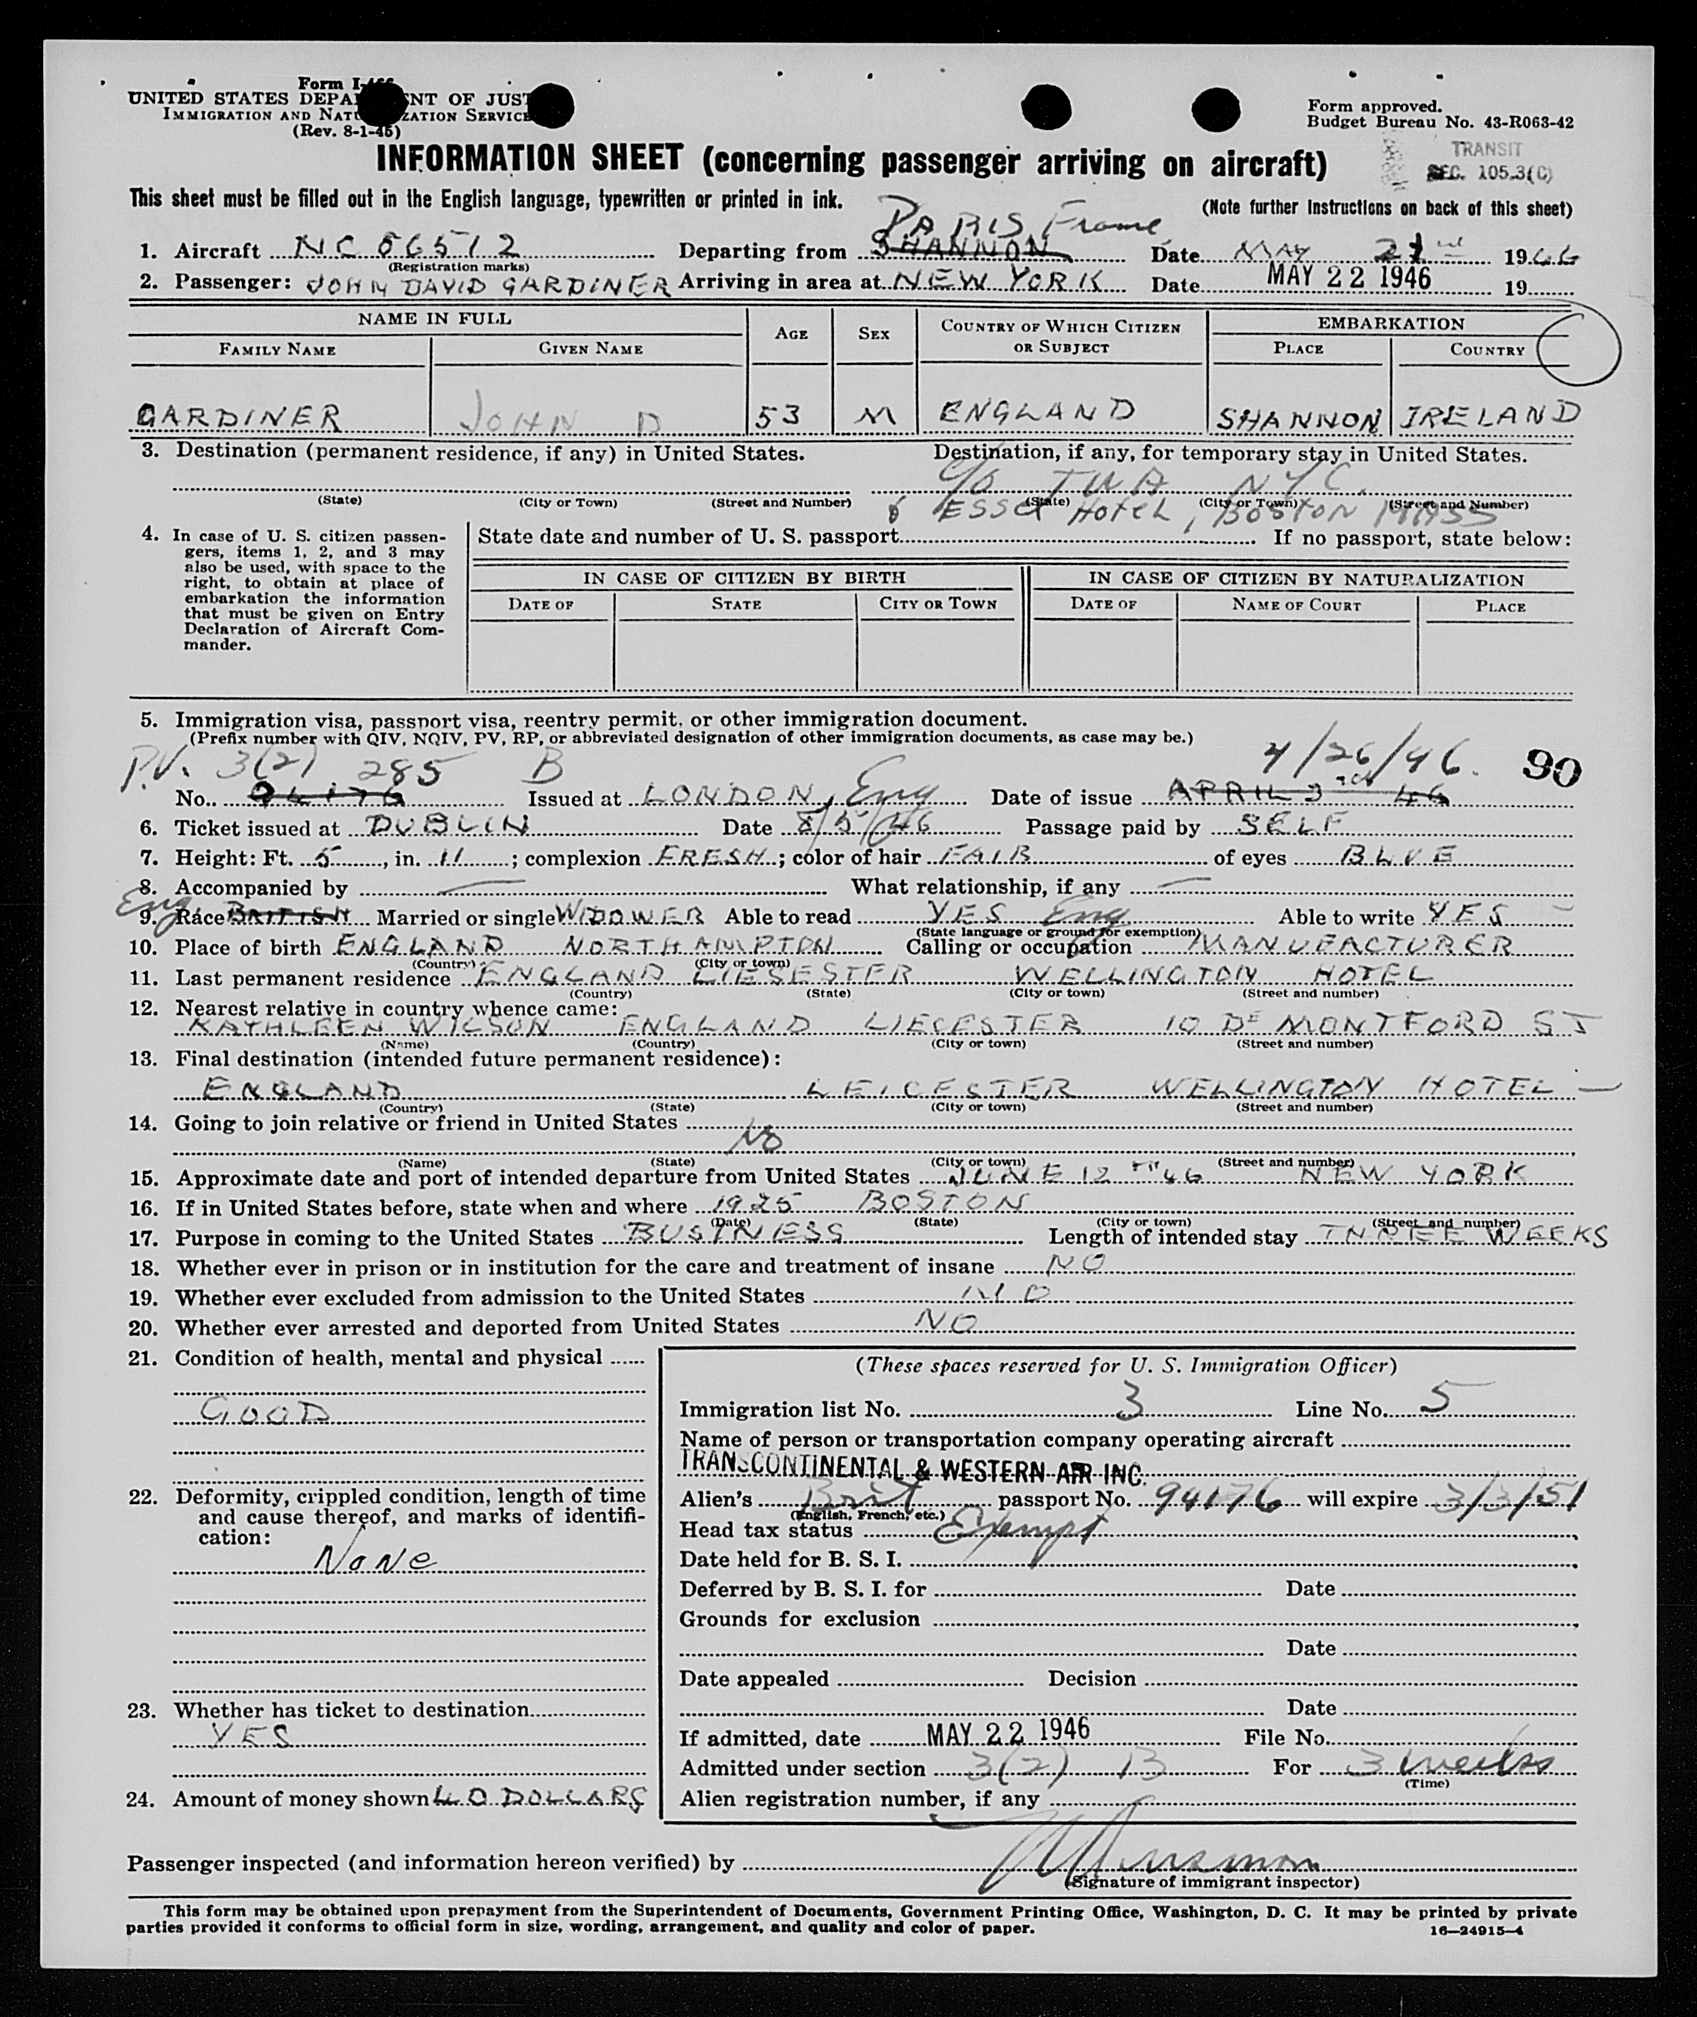 Form I-466
UNITED STATES DEPARTMENT OF JUSTICE
IMMIGRATION AND NATURALIZATION SERVICE
(Rev. 8-1-45)
Form approved.
Budget Bureau No. 43-R063-42
INFORMATION SHEET (concerning passenger arriving on aircraft)
TRANSIT
SEC. 105.3(C)
This sheet must be filled out in the English language, typewritten or printed in ink.
(Note further instructions on back of this sheet)
PARIS France
1. Aircraft NC 86512 Departing from SHANNON Date MAY 21 1946
(Registration marks)
2. Passenger: JOHN DAVID GARDINER Arriving in area at NEW YORK Date MAY 22 1946 19
NAME IN FULL AGE SEX COUNTRY OF WHICH CITIZEN OR SUBJECT EMBARKATION
FAMILY NAME GIVEN NAME PLACE COUNTRY
GARDINER JOHN D 53 M ENGLAND SHANNON IRELAND
3. Destination (permanent residence, if any) in United States. Destination, if any, for temporary stay in United States.
c/o TWA NYC.
(State) (City or Town) (Street and Number) (State) (City or Town) (Street and Number)
& ESSEX HOTEL, BOSTON MASS
4. In case of U. S. citizen passengers, items 1, 2, and 3 may also be used, with space to the right, to obtain at place of embarkation the information that must be given on Entry Declaration of Aircraft Commander.
State date and number of U. S. passport If no passport, state below:
IN CASE OF CITIZEN BY BIRTH IN CASE OF CITIZEN BY NATURALIZATION
DATE OF STATE CITY OR TOWN DATE OF NAME OF COURT PLACE
5. Immigration visa, passport visa, reentry permit, or other immigration document.
(Prefix number with QIV, NQIV, PV, RP, or abbreviated designation of other immigration documents, as case may be.)
P.V. 3(2) 285 B 4/26/46. 90
No. 94176 Issued at LONDON, Eng Date of issue APRIL 3 46
6. Ticket issued at DUBLIN Date 8/5/46 Passage paid by SELF
7. Height: Ft. 5, in. 11; complexion FRESH; color of hair FAIR of eyes BLUE
8. Accompanied by — What relationship, if any —
Eng.
9. Race BRITISH Married or single WIDOWER Able to read YES Eng Able to write YES
(State language or ground for exemption)
10. Place of birth ENGLAND NORTHAMPTON Calling or occupation MANUFACTURER
(Country) (City or town)
11. Last permanent residence ENGLAND LIESESTER WELLINGTON HOTEL
(Country) (State) (City or town) (Street and number)
12. Nearest relative in country whence came:
KATHLEEN WILSON ENGLAND LIECESTER 10 DE MONTFORD ST
(Name) (Country) (City or town) (Street and number)
13. Final destination (intended future permanent residence):
ENGLAND LEICESTER WELLINGTON HOTEL
(Country) (State) (City or town) (Street and number)
14. Going to join relative or friend in United States
NO
(Name) (State) (City or town) (Street and number)
15. Approximate date and port of intended departure from United States JUNE 12TH 46 NEW YORK
16. If in United States before, state when and where 1925 BOSTON
(Date) (State) (City or town) (Street and number)
17. Purpose in coming to the United States BUSINESS Length of intended stay THREE WEEKS
18. Whether ever in prison or in institution for the care and treatment of insane NO
19. Whether ever excluded from admission to the United States NO
20. Whether ever arrested and deported from United States NO
21. Condition of health, mental and physical
GOOD
22. Deformity, crippled condition, length of time and cause thereof, and marks of identification:
None
23. Whether has ticket to destination
YES
24. Amount of money shown 40 DOLLARS
(These spaces reserved for U. S. Immigration Officer)
Immigration list No. 3 Line No. 5
Name of person or transportation company operating aircraft
TRANSCONTINENTAL & WESTERN AIR INC.
Alien's Brit passport No. 94176 will expire 3/3/51
(English, French, etc.)
Head tax status Exempt
Date held for B. S. I.
Deferred by B. S. I. for Date
Grounds for exclusion
Date
Date appealed Decision
Date
If admitted, date MAY 22 1946 File No.
Admitted under section 3(2) B For 3 weeks
(Time)
Alien registration number, if any
Passenger inspected (and information hereon verified) by
(Signature of immigrant inspector)
This form may be obtained upon prepayment from the Superintendent of Documents, Government Printing Office, Washington, D. C. It may be printed by private
parties provided it conforms to official form in size, wording, arrangement, and quality and color of paper.
16—24915-4